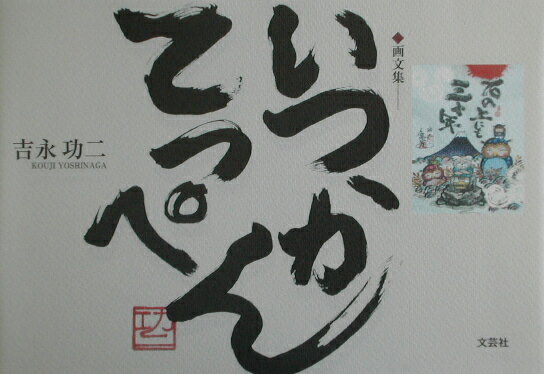 画文集
いつか
てっぺん
吉永 功二
KOUJI YOSHINAGA
石の上にも
三十年
功二
文芸社